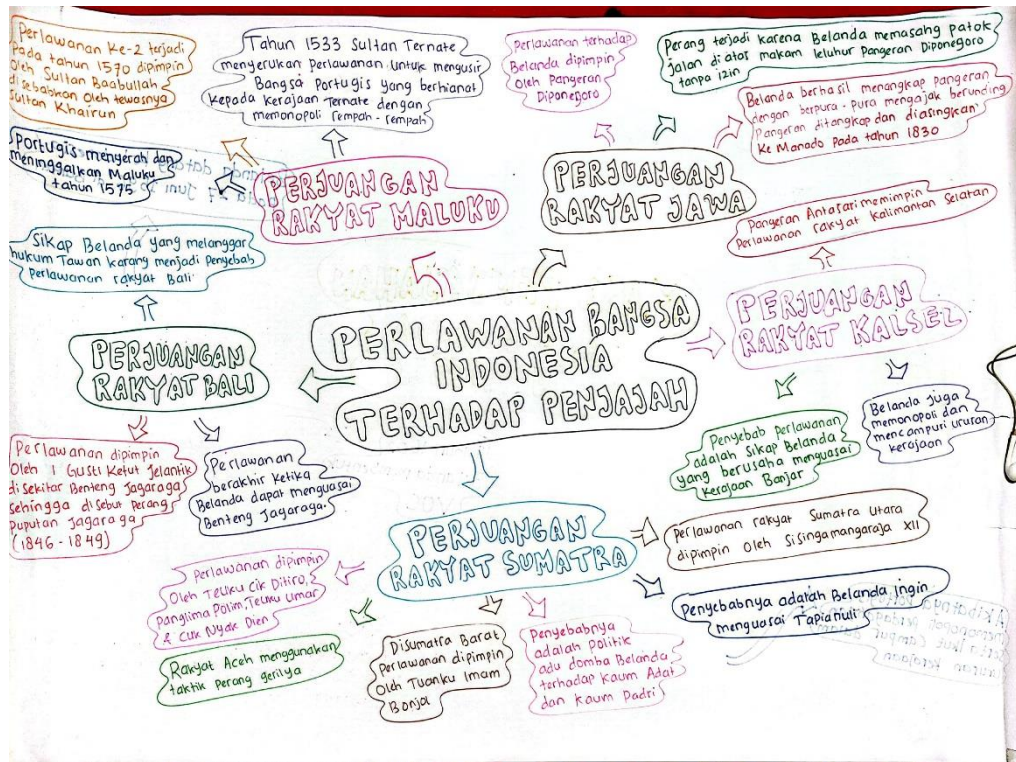 Perlawanan Ke-2 terjadi
Pada tahun 1570 dipimpin
oleh Sultan Baabullah
disebabkan oleh tewasnya
Sultan Khairun
Tahun 1533 Sultan Ternate
menyerukan perlawanan untuk mengusir
Bangsa Portugis yang berhianat
kepada kerajaan Ternate dengan
memonopoli rempah-rempah
Portugis menyerah dan
meninggalkan Maluku
tahun 1575
PERJUANGAN
RAKYAT MALUKU
Perlawanan terhadap
Belanda dipimpin
oleh Pangeran
Diponegoro
Perang terjadi karena Belanda memasang patok
jalan di atas makam leluhur Pangeran Diponegoro
tanpa izin
Belanda berhasil menangkap Pangeran
dengan berpura-pura mengajak berunding
Pangeran ditangkap dan diasingkan
Ke Manado pada tahun 1830
PERJUANGAN
RAKYAT JAWA
Pangeran Antasari memimpin
Perlawanan rakyat Kalimantan Selatan
PERJUANGAN
RAKYAT KALSEL
Penyebab perlawanan
adalah Sikap Belanda
yang berusaha menguasai
kerajaan Banjar
Belanda juga
memonopoli dan
mencampuri urusan
kerajaan
PERLAWANAN BANGSA
INDONESIA
TERHADAP PENJAJAH
Sikap Belanda yang melanggar
hukum Tawan karang menjadi Penyebab
perlawanan rakyat Bali
PERJUANGAN
RAKYAT BALI
Perlawanan dipimpin
Oleh I Gusti Ketut Jelantik
disekitar Benteng Jagaraga
sehingga disebut Perang
Puputan Jagaraga
(1846-1849)
Perlawanan
berakhir ketika
Belanda dapat menguasai
Benteng Jagaraga.
PERJUANGAN
RAKYAT SUMATRA
Perlawanan dipimpin
Oleh Teuku Cik Ditiro,
Panglima Polim, Teuku Umar
& Cuk Nyak Dien
Rakyat Aceh menggunakan
taktik Perang gerilya
DiSumatra Barat
Perlawanan dipimpin
Oleh Tuanku Imam
Bonjol
Penyebabnya
adalah Politik
adu domba Belanda
terhadap Kaum Adat
dan Kaum Padri
Perlawanan rakyat Sumatra Utara
dipimpin Oleh Sisingamangaraja XII
Penyebabnya adalah Belanda ingin
menguasai Tapianuli